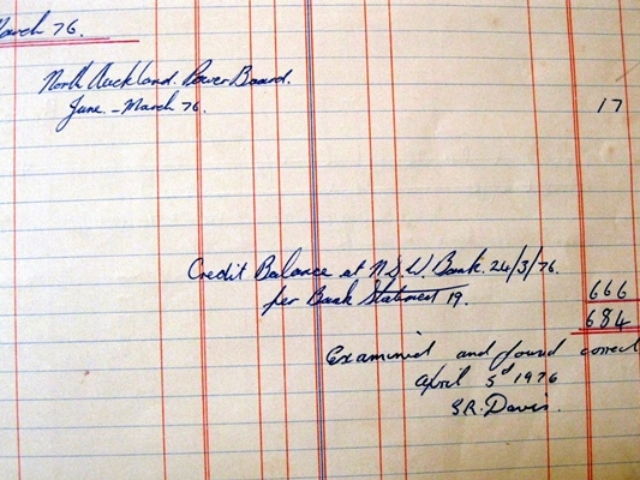 March 76.
North Auckland Power Board.
June - March 76. 17
Credit Balance at N S W Bank. 24/3/76.
per Bank Statement 19. 666
684
Examined and found correct
April 5th 1976
S.R. Davis.